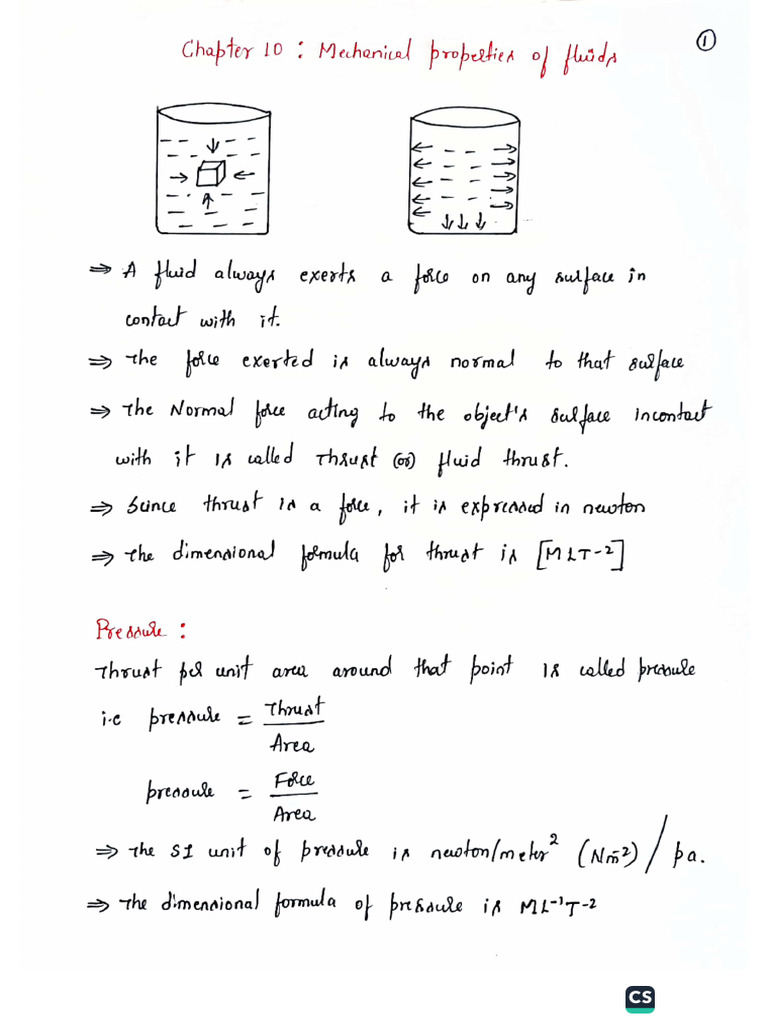 Chapter 10 : Mechanical properties of fluids
1
⇒ A fluid always exerts a force on any surface in
contact with it.
⇒ The force exerted is always normal to that surface
⇒ The Normal force acting to the object's surface incontact
with it is called Thrust (or) fluid thrust.
⇒ Scince thrust is a force, it is expressed in newton
⇒ The dimensional formula for thrust is [MLT-²]
Pressure :
Thrust per unit area around that point is called pressure
i.e pressure = Thrust / Area
pressure = Force / Area
⇒ The SI unit of pressure is newton/meter² (Nm̄²) / pa.
⇒ The dimensional formula of pressure is ML-¹T-²
CS